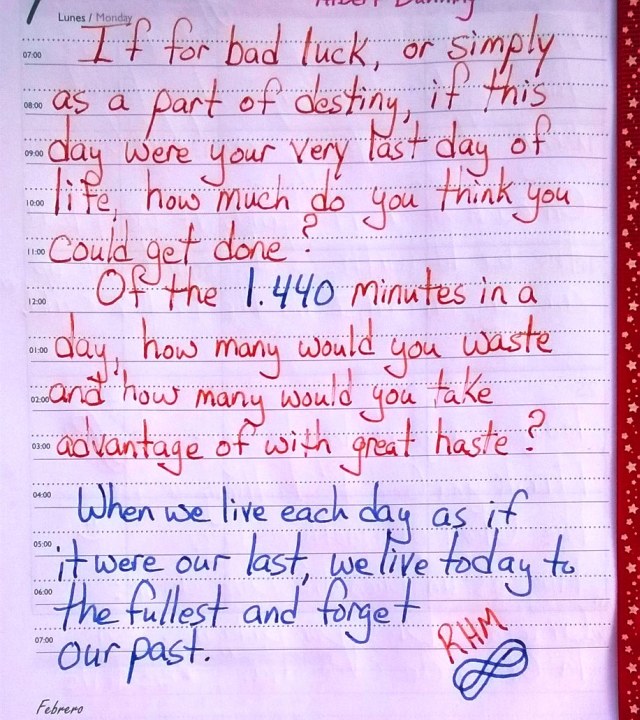 Lunes / Monday
07:00 If for bad luck, or simply
08:00 as a part of destiny, if this
09:00 day were your very last day of
10:00 life, how much do you think you
11:00 could get done?
12:00 Of the 1.440 minutes in a
01:00 day, how many would you waste
02:00 and how many would you take
03:00 advantage of with great haste?
04:00 When we live each day as if
05:00 it were our last, we live today to
06:00 the fullest and forget
07:00 our past.
RHM
Febrero